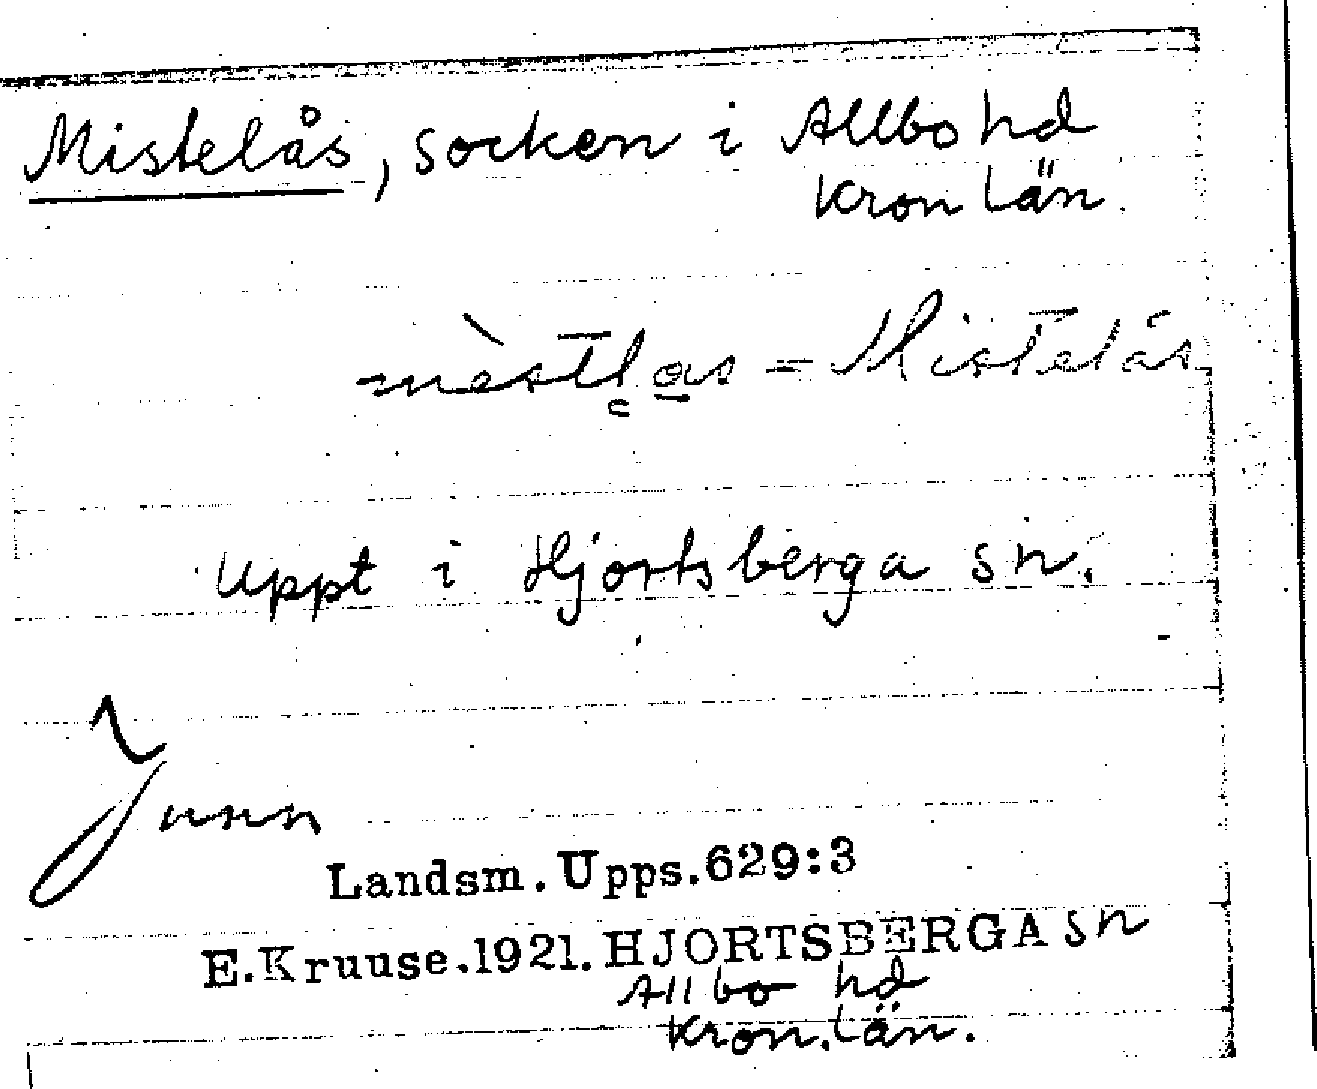 Mistelås, socken i Allbo hd
Kron län.
mèstl̥as = Mistelås
Uppt i Hjortsberga sn.
Landsm. Upps. 629:3
E. Kruuse. 1921. HJORTSBERGA sn
Allbo hd
Kron. län.